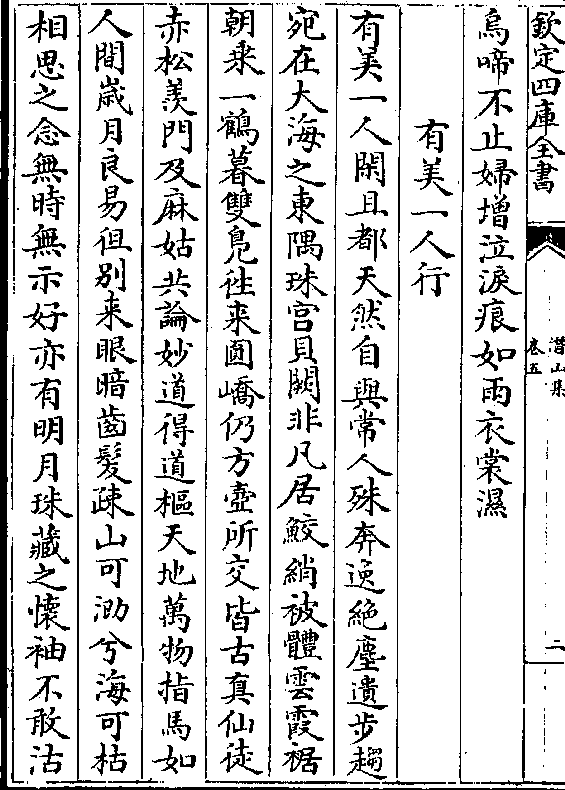 欽定四庫全書
潛山集
卷五
二
烏啼不止婦增泣淚痕如雨衣裳濕
有美一人行
有美一人閑且都天然自與常人殊奔逸絶塵遺步趨
宛在大海之東隅珠宫貝闕非凡居鮫綃被體雲霞裾
朝乗一鶴暮雙鳧徃来圎嶠仍方壺所交皆古真仙徒
赤松羨門及麻姑共論妙道得道樞天地萬物指馬如
人間歲月良易徂别来眼暗齒髪疎山可泐兮海可枯
相思之念無時無示好亦有明月珠藏之懷袖不敢沽